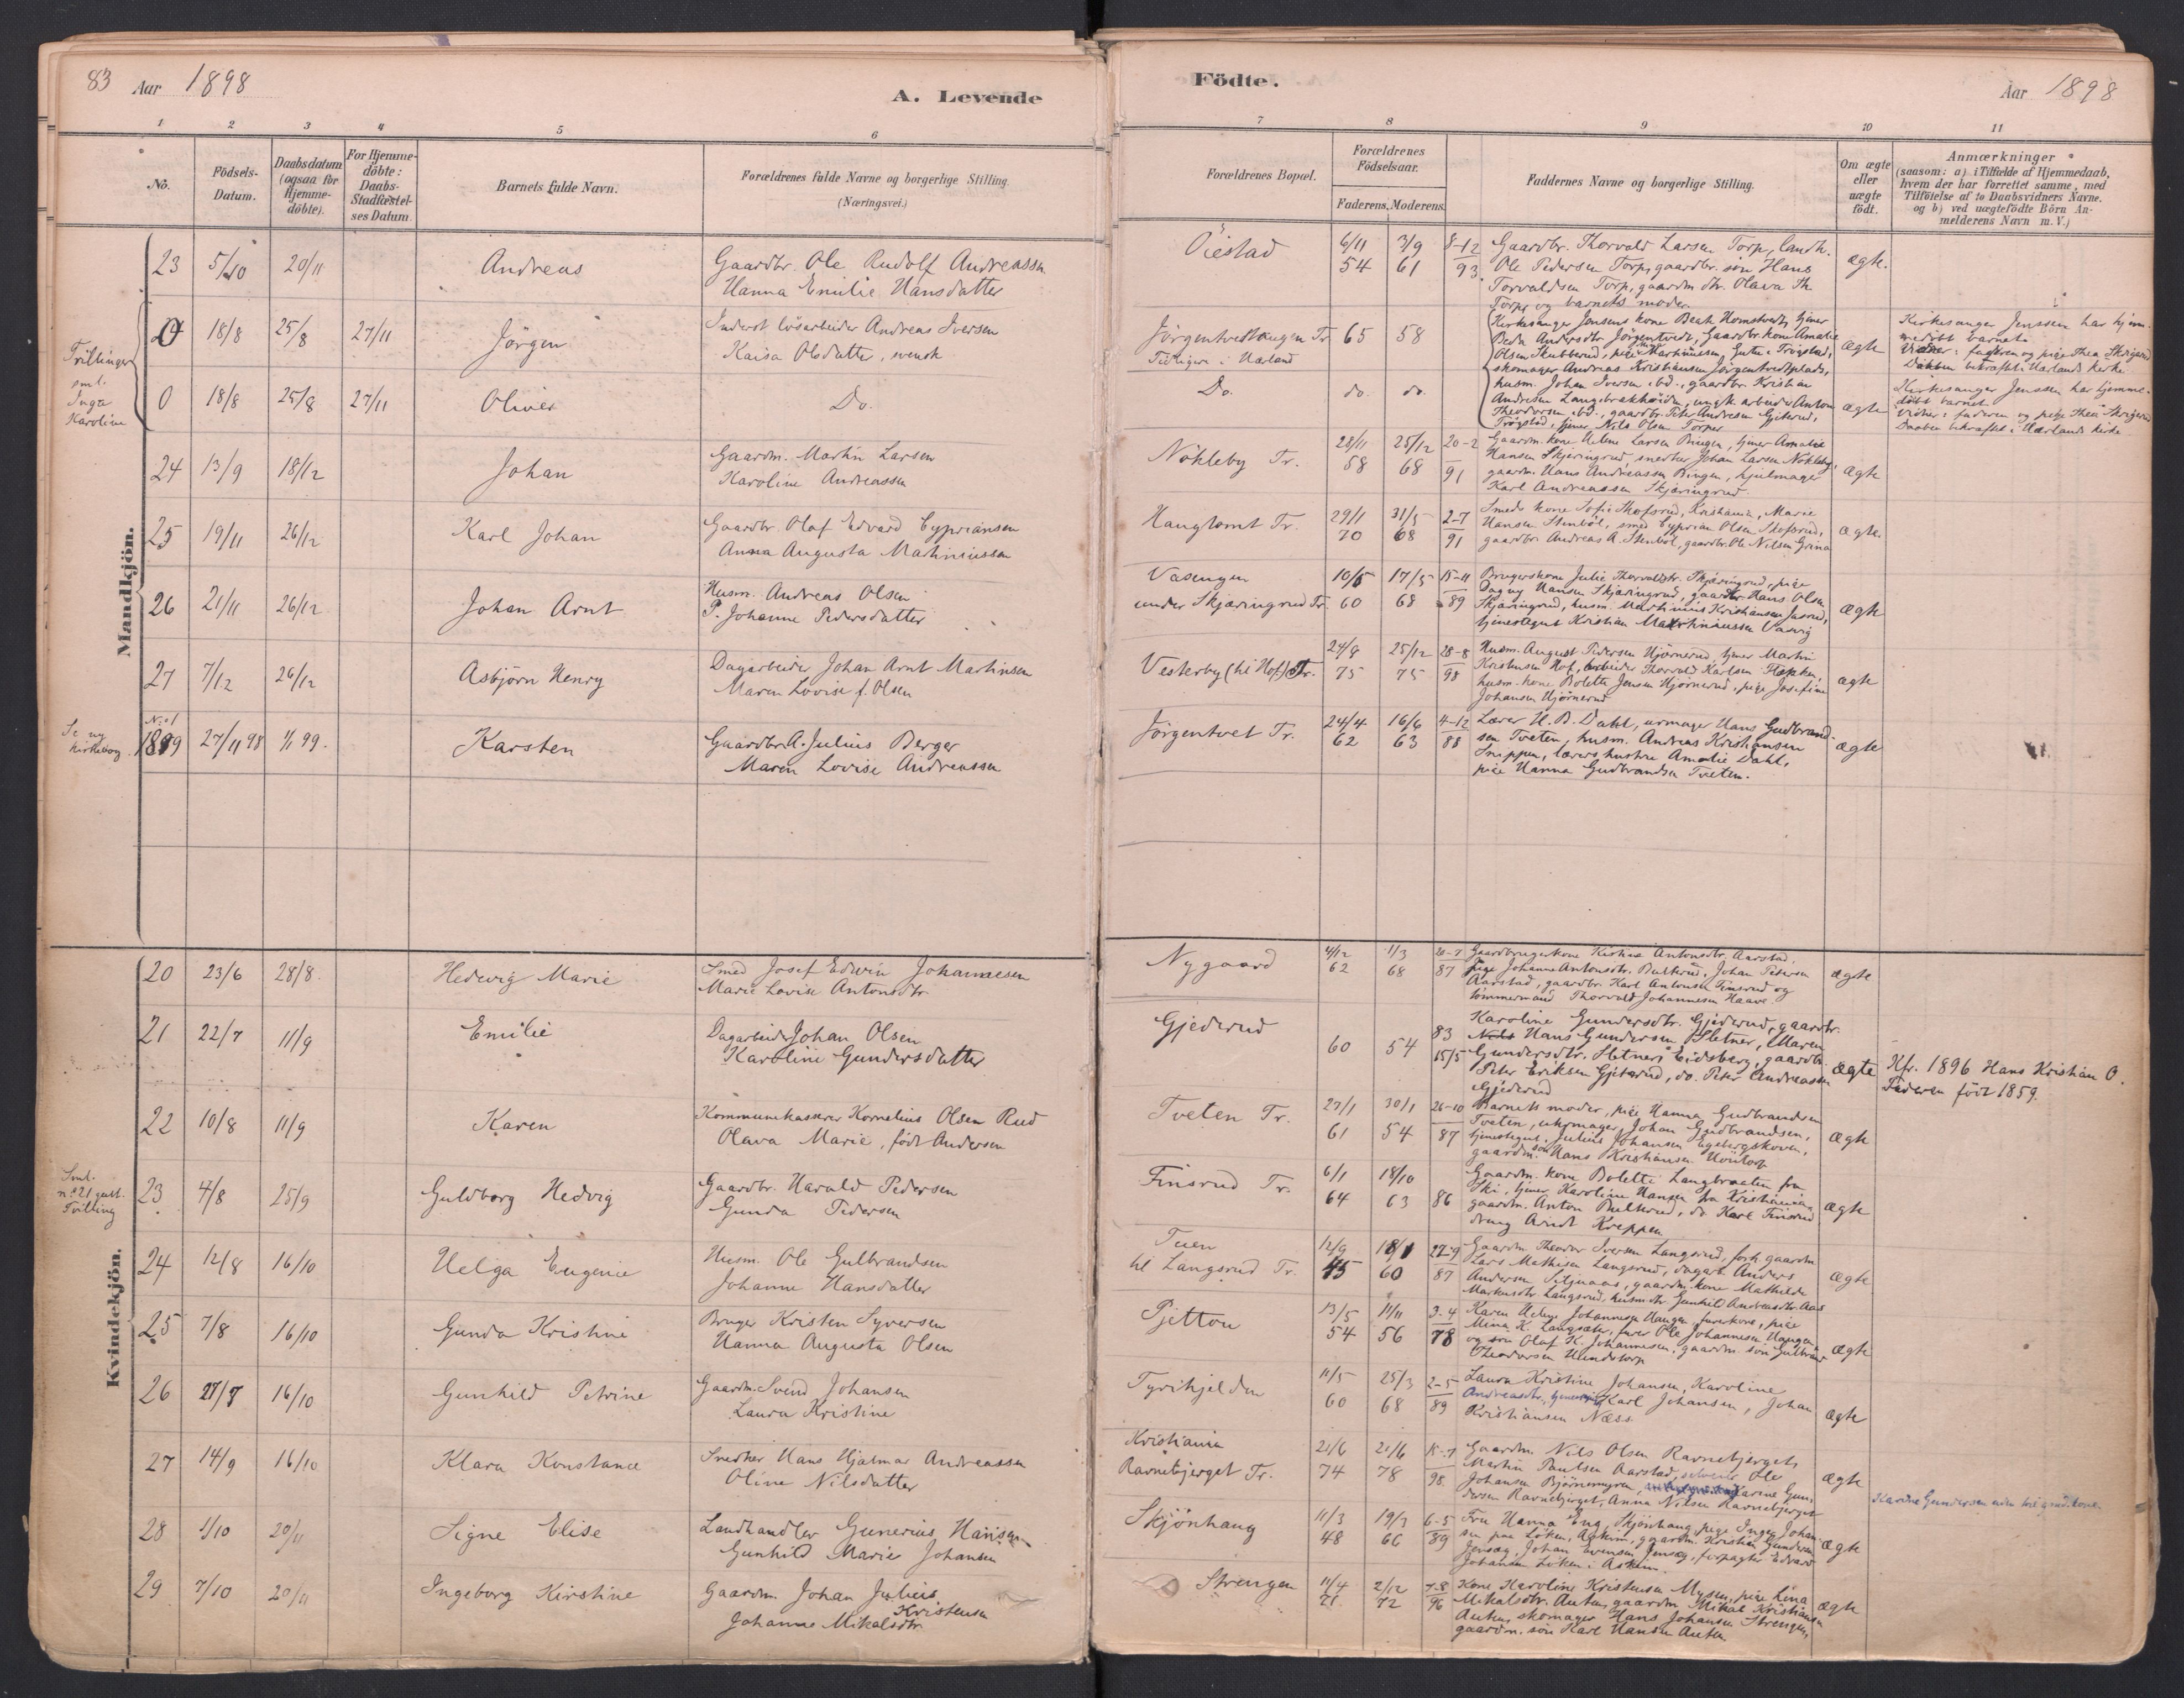 83 Aar 1898
A. Levende
1 2 3 4 5 6
No.
Födsels-Datum.
Daabsdatum (ogsaa for Hjemme-döbte).
For Hjemme-döbte: Daabs-Stadfæstel-ses Datum.
Barnets fulde Navn.
Forældrenes fulde Navne og borgerlige Stilling.
(Næringsvei.)
Mandkjön.
23 5/10 20/11 Andreas Gaardbr. Ole Rudolf Andreassen
Hanna Emilie Hansdatter
Trillinger
sml.
Inga
Karoline
0 18/8 25/8 27/11 Jörgen Inderst lösarbeider Andreas Iversen
Kaisa Olsdatter, svensk
0 18/8 25/8 27/11 Oliver Do.
24 13/9 18/12 Johan Gaardm. Martin Larsen
Karoline Andreassen
25 19/11 26/12 Karl Johan Gaardbr. Olaf Edvard Cypriansen
Anna Augusta Mathiniussen
26 21/11 26/12 Johan Arnt Husm. Andreas Olsen
P. Johanne Pedersdatter
27 7/12 26/12 Asbjörn Henry Dagarbeider Johan Arnt Martinsen
Maren Lovise f. Olsen
Se ny
kirkebog
No 1
1899 27/11 98 1/1 99. Karsten Gaardbr. A. Julius Berger
Maren Lovise Andreassen
Kvindekjön.
20 23/6 28/8 Hedevig Marie Smed Josef Edwin Johannesen
Marie Lovise Antonsdtr.
21 22/7 11/9 Emilie Dagarbeider Johan Olsen
Karoline Gundersdatter
22 10/8 11/9 Karen Kommunekasserer Kornelius Olsen Rud
Olava Marie, födt Andersen
Sml.
no 21 gutt.
Tvilling
23 4/8 25/9 Guldborg Hedvig Gaardbr. Harald Pedersen
Gunda Pedersen
24 12/8 16/10 Helga Eugenie Husm. Ole Gulbrandsen
Johanne Hansdatter
25 7/8 16/10 Gunda Kristine Bruger Kristen Syversen
Hanna Augusta Olsen
26 27/7 16/10 Gunhild Petrine Gaardm. Svend Johansen
Laura Kristine
27 14/9 16/10 Klara Konstance Snedker Hans Hjalmar Andreassen
Oline Nilsdatter
28 1/10 20/11 Signe Elise Landhandler Gunerius Hansen
Gunhild Marie Johansen
29 7/10 20/11 Ingeborg Kirstine Gaardm. Johan Julius Kristensen
Johanne Mikalsdtr.
Födte.
Aar 1898
7 8 9 10 11
Forældrenes Bopæl.
Forældrenes Födselsaar.
Faderens. Moderens.
Faddernes Navne og borgerlige Stilling.
Om ægte eller uægte födt.
Anmærkninger
(saasom: a) i Tilfælde af Hjemmedaab,
hvem der har forrettet samme, med
Tilföielse af to Daabsvidners Navne.
og b) ved uægtefödte Börn An-
melderens Navn m.V.)
Öiestad 6/11 54 3/9 61 8-12 93 Gaardbr. Thorvald Larsen Torp, landh.
Ole Pedersen Torp, gaardbr. sön Hans
Torvaldsen Torp, gaardm dtr. Olava Th.
Torp, og barnets moder.
ægte.
Jörgentvethaugen Tr. 65 58
Tidligere i Hærland
Kirkesanger Jensens kone Beate Homstvedt, tjener
Beda Andersdtr. Jörgentvedt, Gaardbr. kone Amalie
Olsen Skubberud, pige Martiniusen, Gutu i Trögstad,
skomager Andreas Kristiansen Jörgentvedtplads,
husm. Johan Iversen ibd., gaardbr. Kristian
Andresen Langebrakheiden, ungk. arbeider Anton
Theodorsen ibd., gaardbr. Peter Andresen Gjeterud,
Trögstad, tjener Nils Olsen Torper
ægte
Kirkesanger Jenssen har hjem-
medöbt barnet.
Vidner: faderen og pige Thea Skrigerud
Daaben bekræftet i Hærlands kirke
Do. do. do. ægte
Kirkesanger Jenssen har hjemme-
döbt barnet
Vidner: faderen og pige Thea Skrigerud
Daaben bekræftet i Hærlands kirke
Nökleby Tr. 28/11 58 25/12 68 20-2 91 Gaardm. kone Helene Larsen Bingen, tjener Amalie
Hansen Skjæringrud, snedker Johan Larsen Nökleby,
gaardm. Hans Andreassen Bingen, hjulmager
Karl Andreassen Skjæringrud
ægte
Haugtomt Tr. 29/1 70 31/5 68 2-7 91 Smeds kone Sofie Skofsrud, Kristiania, Marie
Hansen Stenböl, smed Cyprian Olsen Skofsrud,
gaardbr. Andreas A. Stenböl, gaardbr. Ole Nilsen Grina
ægte.
Vasengen 10/5 60 17/5 68 15-11 89
under Skjæringrud Tr.
Brugerskone Julie Thorvaldsdtr. Skjæringrud, pige
Dagny Hansen Skjæringrud, gaardbr. Hans Olsen
Skjæringrud, husm. Martinius Kristiansen Jasrud,
tjenestegut Kristian Martiniussen Vasvig
ægte
Vesterby (hi Hof) Tr. 24/8 75 25/12 75 28-8 98 Husm. August Pedersen Hjörnerud, tjener Martin
Kristensen Hof, arbeider Thorvald Karlsen Flekken,
husm-kone Bolette Jensen Hjörnerud, pige Josefine
Johansen Hjörnerud
ægte
Jörgentvet Tr. 24/4 62 16/6 63 4-12 88 Lærer H. B. Dahl, urmager Hans Gudbrand-
sen Tveten, husm. Andreas Kristiansen
Snippen, lærers hustru Amalie Dahl,
pige Hanna Gudbrandsen Tveten.
ægte
Nygaard 4/12 62 1/3 68 20-7 87 Gaardbrugerkone Kirstine Antonsdtr. Aarstad,
pige Johanne Antonsdtr. Bulterud, Johan Petersen
Aarstad, gaardbr. Karl Antonsen Finsrud og
tömmermand Thorvald Johannesen Haave
ægte
Gjederud 60 54 83 15/5 Karoline Gundersdtr. Gjederud, gaardbr.
Nils Hans Gundersen Sletner, Maren
Gundersdtr. Sletner i Eidsberg, gaardbr.
Peter Eriksen Gjiterud, do. Peter Andreassen
Gjederud
ægte Kfr. 1896 Hans Kristian O.
Faderen födt 1859.
Tveten Tr. 27/1 61 30/1 54 26-10 87 Barnets moder, pige Hanna Gudbrandsen
Tveten, uhrmager Johan Gudbrandsen,
tjenestegut Julius Johansen Egebergskoven,
gaardm. sön Hans Kristiansen Höntorp
ægte
Finsrud Tr. 6/1 64 18/10 63 86 Gaardm. kone Bolette Langbraaten fra
Ski, tjener Karoline Hansen fra Kristiania,
gaardm. Anton Bulterud, do Karl Finsrud
dreng Arndt Kreppen
ægte
Tuen 12/9 45 18/1 60 27-9 87
til Langsrud Tr.
Gaardm. Theodor Iversen Langsrud, forh. gaardm
Lars Mathisen Langsrud, dagarb. Anders
Andersen Sitjuaas, gaardm. kone Mathilde
Markusdtr Langsrud, husm dtr. Gunhild Andreasdtr. Aas
ægte
Pjetton 13/5 54 11/11 56 3-4 78 Karen Helene Johannesen Haugen, furerkone, pige
Mina K. Langsæter, furer Ole Johannesen Haugen
og sön Olaf K. Johannesen, gaardm. sön Gulbrand
Theodorsen Hundstorp
ægte
Tyrihjelden 11/5 60 25/3 68 2-5 89 Laura Kristine Johansen, Karoline
Andreasdtr., Karl Johansen, Johan
Kristiansen Næss
ægte
Kristiania 21/6 74 21/6 78 18-7 98
Ravnebjerget Tr.
Gaardm. Nils Olsen Ravnebjerget,
Martin Paulsen Aarstad, selveier Ole
Johansen Bjönemyren, Karine Gun-
dersen Ravnebjerget, Anna Nilsen Ravnebjerget
ægte
Karine Gundersen uden
Skjönhaug 11/3 48 19/3 66 6-5 89 Fru Hanna Eng Skjönhaug, pige Inger Johan-
sen paa Löken, Askim, gaardm. Kristian Gundersen
Jensæg, Johan Evensen Jensæg, forpagter Edvard
Johansen Löken i Askim.
ægte
Strengen 11/4 71 2/12 72 7-8 96 Kone Karoline Kristensen Mysen, pige Lina
Mikalsdtr. Auten, gaardm Mikal Kristiansen
Auten, skomager Hans Johansen Strengen,
gaardm. sön Karl Hansen Auten
ægte